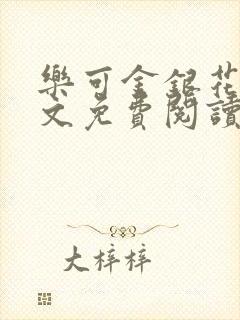 樂可金銀花
文免費閱讀
大梓梓